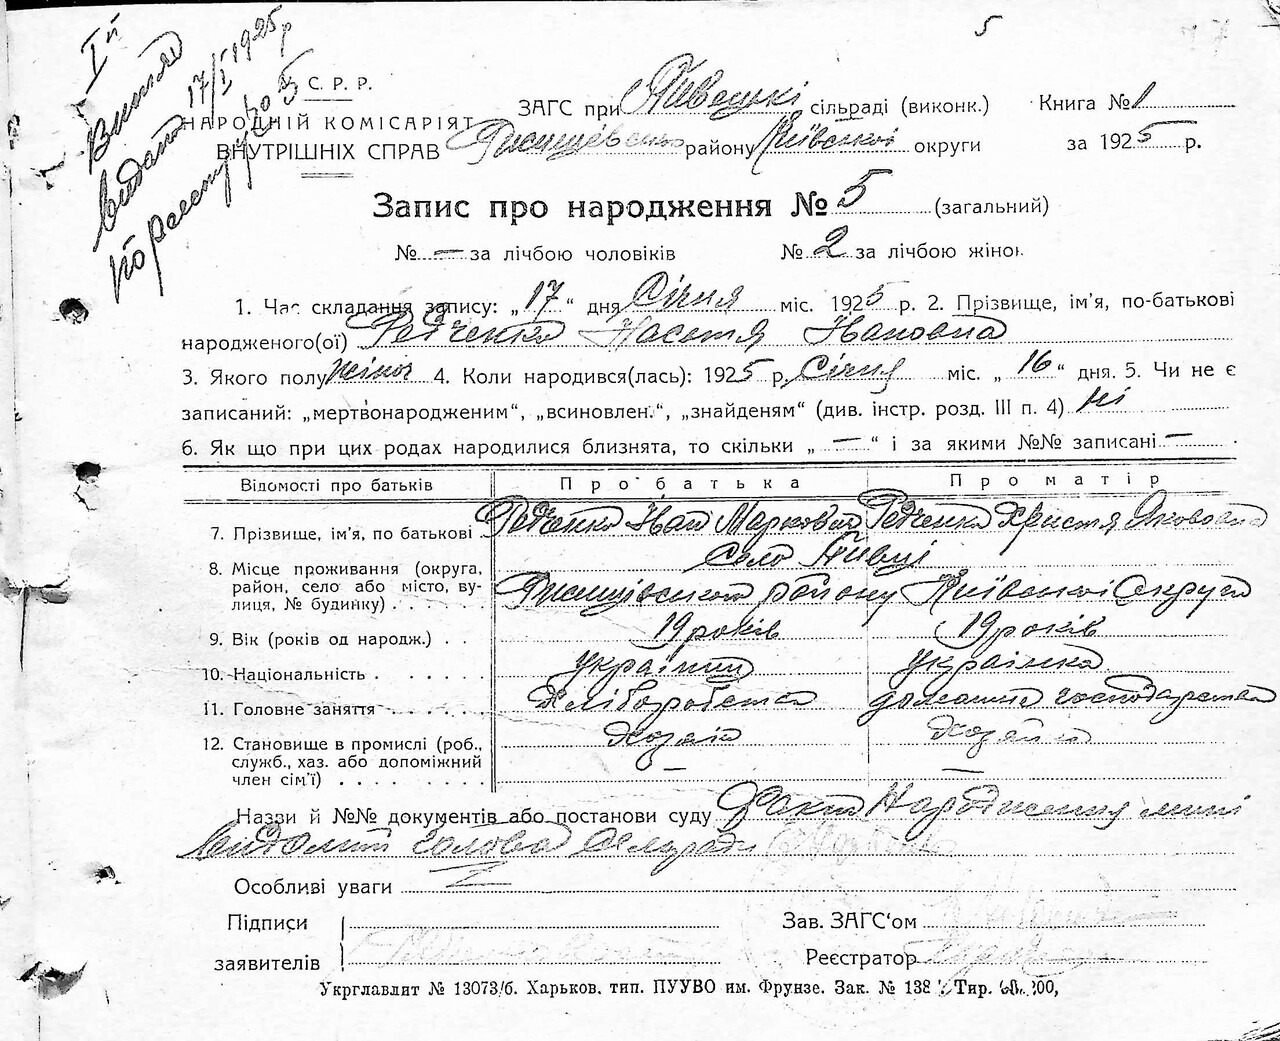 5
Iй
Витяг
видано 17/I 1925 р
по реєстру № 5
С. Р. Р.
НАРОДНІЙ КОМІСАРІЯТ
ВНУТРІШНІХ СПРАВ
ЗАГС при сільраді (виконк.) Книга № 1
району Київської округи за 1925 р.
Запис про народження № 5 (загальний)
№ — за лічбою чоловіків № 2 за лічбою жінок
1. Час складання запису: „17“ дня Січня міс. 1925 р. 2. Прізвище, ім'я, по-батькові
народженого(ої) Редченко Настя Івановна
3. Якого полу жіноч 4. Коли народився(лась): 1925 р. Січня міс. „16“ дня. 5. Чи не є
записаний: „мертвонародженим“, „всиновлен.“, „знайденям“ (див. інстр. розд. III п. 4) ні
6. Як що при цих родах народилися близнята, то скільки „—“ і за якими №№ записані —
Відомості про батьків Про батька Про матір
7. Прізвище, ім'я, по батькові Редченко Іван Маркович Редченко Христя Якововна
8. Місце проживання (округа, Село Півці
район, село або місто, ву- Ржищівського району Київської Округи
лиця, № будинку)
9. Вік (років од народж.) 19 років 19 років
10. Національність українец українка
11. Головне заняття Хліборобство домашнє господарство
12. Становище в промислі (роб., Хозяїн Хозяйка
служб., хаз. або допоміжний
член сім'ї) — —
Назви й №№ документів або постанови суду Факт Народження мині
відомий голова Сельради
Особливі уваги
Підписи
заявителів
Зав. ЗАГС‘ом
Реєстратор
Укрглавлит № 13073/б. Харьков. тип. ПУУВО им. Фрунзе. Зак. № 138 Тир.